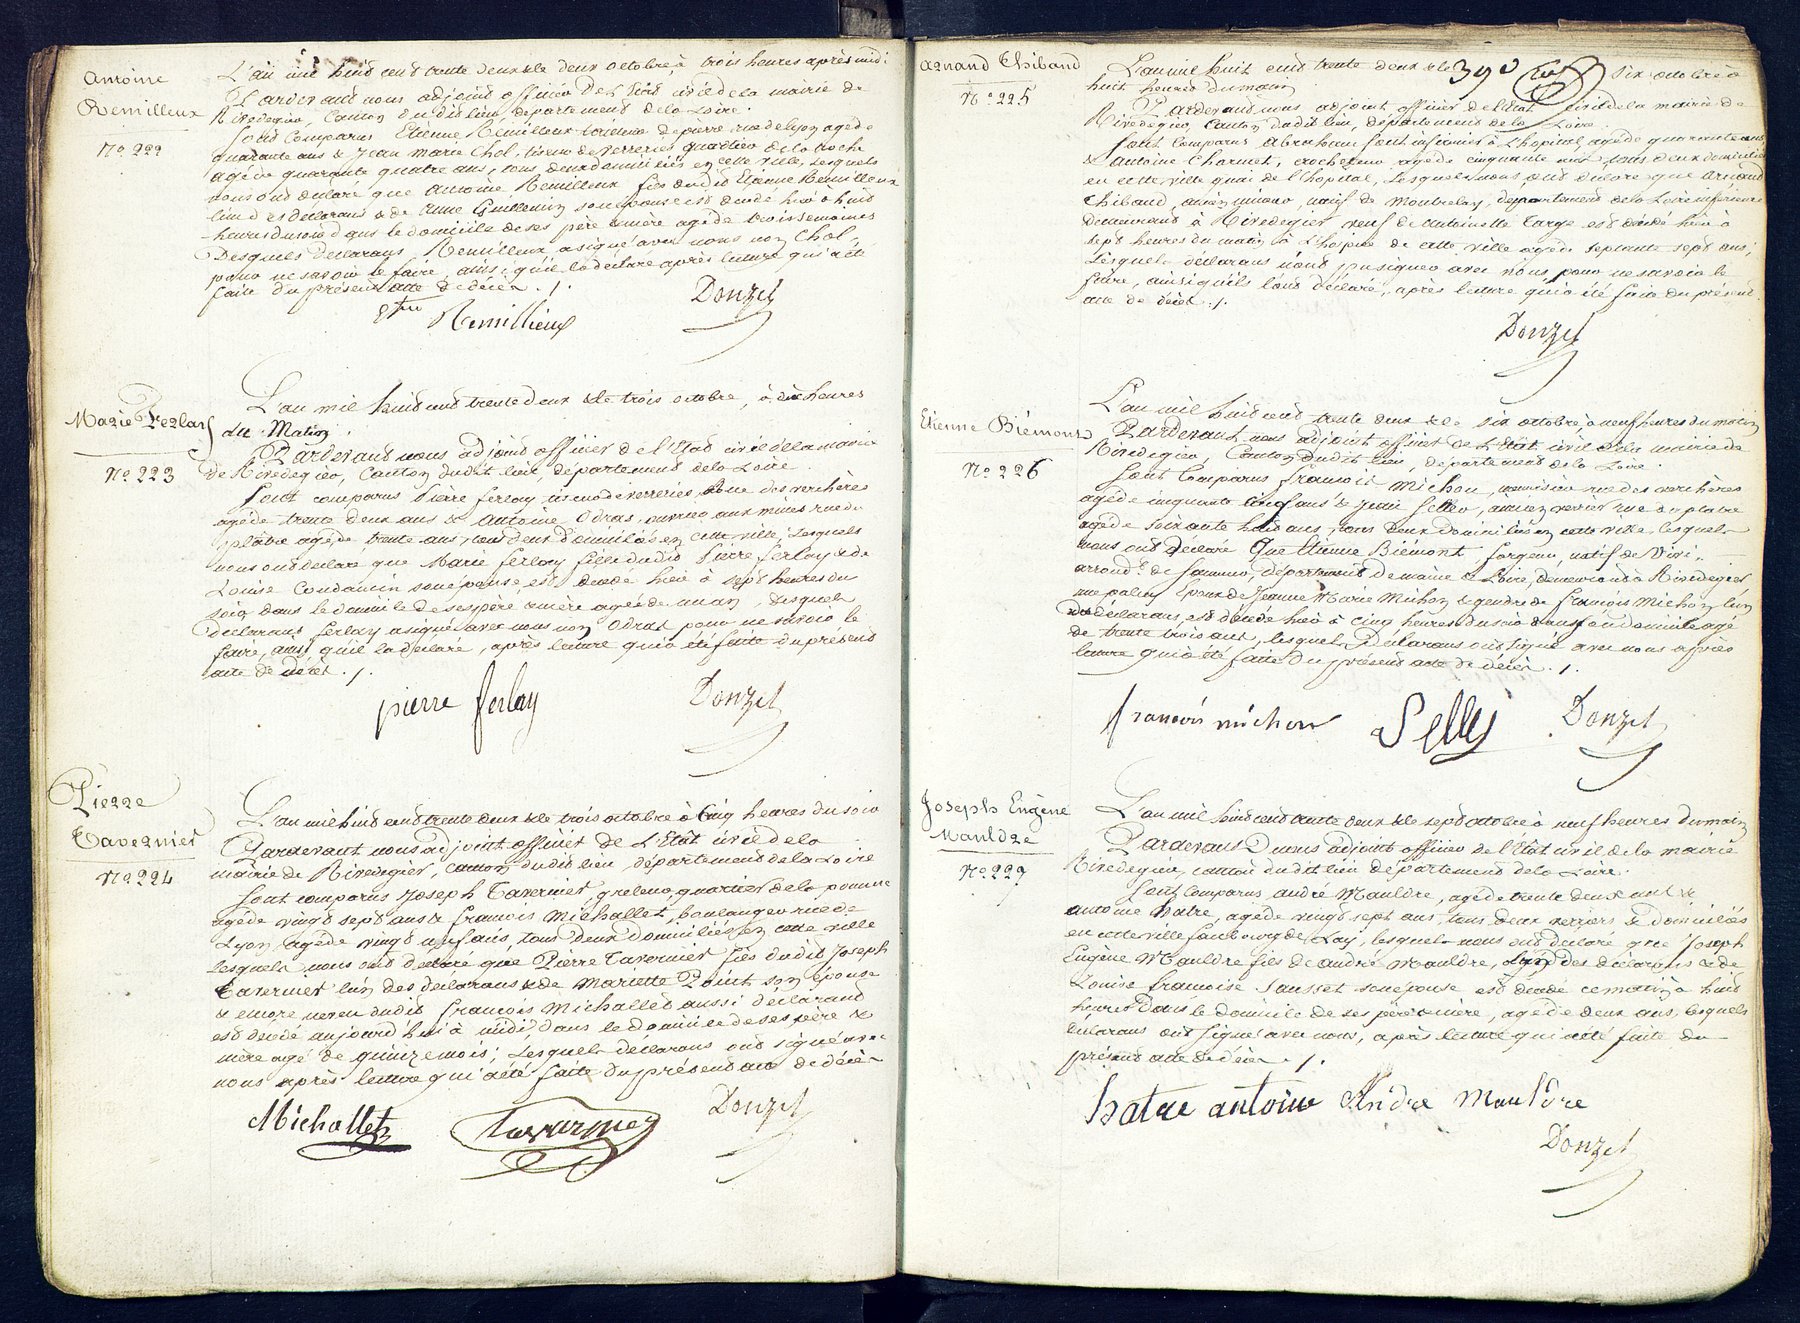 Antoine
Remilleux
No. 222
L'an mil huit cent trente deux & le deux octobre, à trois heures après midi
Pardevant nous adjoint officier de l'Etat civil de la mairie de
Rivedegier, Canton dudit lieu, département de la Loire.
Sont comparus Etienne Remilleux tailleur de pierre rue de lyon agé de
quarante ans & Jean Marie Chol, tiseur de verreries quartier de la roche
agé de quarante quatre ans, tous deux domiciliés en cette ville, lesquels
nous ont déclaré que Antoine Remilleux fils dudit Etienne Remilleux
l'un des déclarans & de Anne Guillemin son épouse est décédé hier à huit
heures du soir dans le domicile de ses père & mère agé de trois semaines
Desquels déclarans Remilleux a signé avec nous non Chol
pour ne savoir le faire, ainsi qu'il l'a déclaré après lecture qui a été
faite du présent acte de décès ./.
Remillieux
Donzel
Marie Ferlay
No. 223
L'an mil huit cent trente deux & le trois octobre, à dix heures
du Matin.
Pardevant nous adjoint officier de l'Etat civil de la mairie
de Rivedegier, Canton dudit lieu, département de la Loire.
Sont comparus Pierre ferlay tiseur de verreries, rue des verchères
agé de trente deux ans & Antoine Odras, ouvrier aux mines rue du
plâtre agé de trente ans, tous deux domiciliés en cette ville, lesquels
nous ont déclaré que Marie ferlay fille dudit Pierre ferlay & de
Louise Condamin son épouse, est décédé hier à sept heures du
soir dans le domicile de ses père & mère agée de un an, desquels
déclarans ferlay a signé avec nous non Odras pour ne savoir le
faire, ainsi qu'il l'a déclaré, après lecture qui a été faite du présent
acte de décès ./.
pierre ferlay
Donzel
Pierre
Tavernier
No. 224
L'an mil huit cent trente deux & le trois octobre à Cinq heures du soir
Pardevant nous adjoint officier de l'Etât civil de la
mairie de Rivedegier, canton dudit lieu, département de la Loire
Sont comparus Joseph Tavernier, quartier de la pomme
agé de vingt sept ans & francois Michallet, boulanger rue de
Lyon agé de vingt neuf ans, tous deux domiciliés en cette ville
lesquels nous ont déclaré que Pierre Tavernier fils dudit Joseph
Tavernier l'un des déclarans & de Mariette Point son épouse
& encore neveu dudit francois Michallet aussi déclarant
est décédé aujourd'hui à midi, dans le domicile de ses père &
mère agé de quinze mois; lesquels déclarans ont signé avec
nous après lecture qui a été faite du présent acte de décès
Michallet
Tavernier
Donzel
Arnaud Thibaud
No. 225
390
L'an mil huit cent trente deux & le six octobre à
huit heures du matin
Pardevant nous adjoint officier de l'Etat civil de la mairie de
Rivedegier, Canton dudit lieu, département de la Loire.
Sont comparus Abraham font infirmier à l'hopital agé de quarante ans
& Antoine Charmet, crocheteur agé de cinquante ans tous deux domiciliés
en cette ville quai de l'hopital, lesquels nous ont déclaré que Arnaud
Thibaud, ancien mineur, natif de Montrelay, département de la Loire inférieure
demeurant à Rivedegier, veuf de Antoinette Large est décédé hier à
sept heures du matin à l'hospice de cette ville agé de septante sept ans;
Lesquels déclarans n'ont pu signer avec nous pour ne savoir le
faire, ainsi qu'ils l'ont déclaré, après lecture qui a été faite du présent
acte de décès ./.
Donzel
Etienne Biémont
No. 226
L'an mil huit cent trente deux & le six octobre à neuf heures du matin
Pardevant nous adjoint officier de l'Etât civil de la mairie de
Rivedegier, Canton dudit lieu, département de la Loire.
Sont Comparus francois Michon, rue des verchères
agé de cinquante cinq ans & Jean Selley, ancien verrier rue du plâtre
agé de soixante huit ans, tous deux domiciliés en cette ville, lesquels
nous ont déclaré Que Etienne Biémont forgeur, natif de Vivi
arrondt. de saumur, département de maine & Loire, demeurant à Rivedegier
époux de Jeanne Marie Michon & gendre de francois Michon l'un
des déclarans est décédé hier à cinq heures du soir dans son domicile agé
de trente trois ans, lesquels déclarans ont signé avec nous après
lecture qui a été faite du présent acte de décès ./.
francois michon
Selley
Donzel
Joseph Eugène
Mauldre
No. 227
L'an mil huit cent trente deux & le sept octobre à neuf heures du matin
Pardevant nous adjoint officier de l'Etât civil de la mairie
Rivedegier, canton dudit lieu département de la Loire.
Sont Comparus, andré Mauldre, agé de trente deux ans &
antoine hatre, agé de vingt sept ans tous deux verriers & domiciliés
en cette ville faubourg de Lay, lesquels nous ont déclaré que Joseph
Eugène Mauldre fils de andré Mauldre, l'un des déclarans & de
Louise francoise Sausset son épouse est décédé ce matin à huit
heures dans le domicile de ses père & mère, agé de deux ans, lesquels
déclarans ont signé avec nous, après lecture qui a été faite du
présent acte de décès ./.
hatre antoine
André Mauldre
Donzel